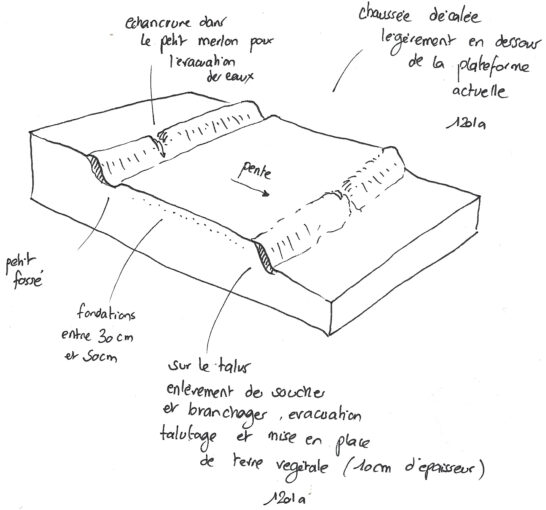 échancrure dans
le petit merlon pour
l'évacuation
des eaux
chaussée décalée
légèrement en dessous
de la plateforme
actuelle
1201a
pente
petit
fossé
fondations
entre 30cm
et 50cm
sur le talus
enlèvement de souches
et branchages, evacuation
talutage et mise en place
de terre végétale (10cm d'épaisseur)
1201a